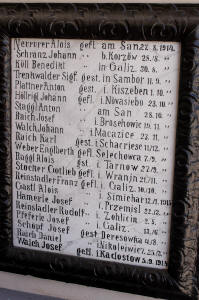 Nerrurer Alois gefl. am San 22.8.1914.
Schranz Johann " b. Korzów 28./8. "
Köll Benedikt " in Galiz. 30.8. "
Trenkwalder Sigf. gest. in Sambor 11.9. "
Plattner Anton gest. i. Kiszeben 1.10. "
Höllrigl Johann gefl. i. Nowasielo 23.10. "
Staggl Anton " am San 28.10. "
Raich Josef " i. Brosehowic 19.11. "
Walch Johann " i. Macazice 22.11. "
Raich Karl gest. i. Scharriese 11/12. "
Weber Englberth gefl. Selechowca 7./9. "
Raggl Alois gest. i. Tarnow 27./9. "
Stocher Gottlieb gefl. i. Wranjn 21./11. "
Reinstadler Franz gefl. i. Galiz. 10./10. "
Gastl Alois " i. Simichar 12./1. 1915
Hamerle Josef " i. Przemisl 22./12. "
Reinstadler Rudolf " i. Zohlicin 2.3. "
Pfeferle Josef " i. Galiz. "
Schopf Josef gest. Deresowka 4./8. "
Raich Daniel " i. Nikolejewic 25./7. "
Walch Josef gefl. i. Kadostow 5.9.1914